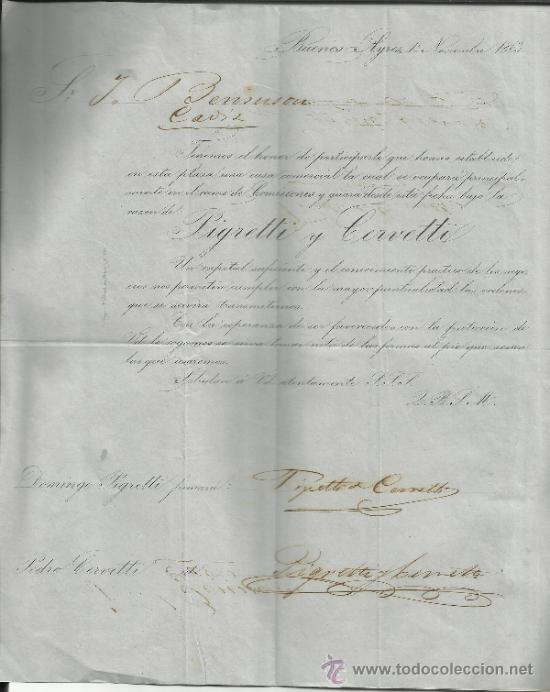 Buenos Ayres, 1º Noviembre 1863
Sr. J. Bensusan
Cadiz
Tenemos el honor de participarle que hemos establecido
en esta plaza una casa comercial la cual se ocupará principal-
mente en el ramo de Comisiones y girará desde esta fecha bajo la
razon de
Pigretti y Cervetti
Un capital suficiente y el conocimiento practico de los nego-
cios nos permitirá cumplir con la mayor puntualidad las ordenes
que se servirá transmitirnos.
Con la esperanza de ser favorecidos con la proteccion de
Vd. le rogamos se sirva tomar nota de las firmas al pie que seran
las que usaremos.
Saludan á Vd. atentamente S.S.S.
Q.B.S.M.
Domingo Pigretti firmará:
Pigretti y Cervetti
Pedro Cervetti
Pigretti y Cervetti
todocoleccion
www.todocoleccion.net